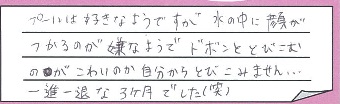 プールは好きなようですが 水の中に顔が
つかるのが嫌なようで ドボンととびこむ
のがこわいのか自分からとびこみません…
一進一退な3ヶ月でした(笑)